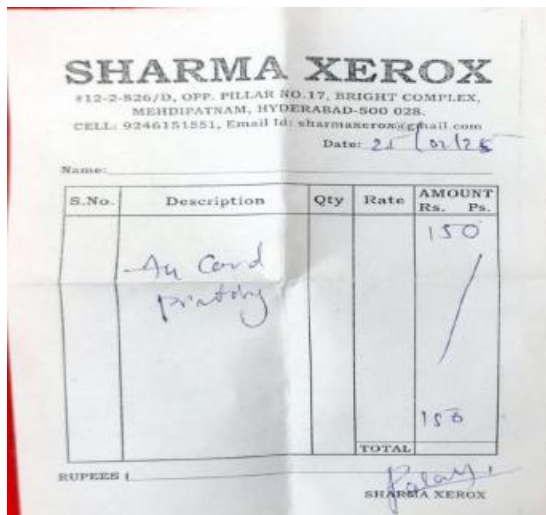 SHARMA XEROX
#12-2-826/D, OPP. PILLAR NO.17, BRIGHT COMPLEX,
MEHDIPATNAM, HYDERABAD-500 028.
CELL: 9246151551, Email Id: sharmaxerox@gmail.com
Date: 25/02/25
Name:
S.No. Description Qty Rate AMOUNT
Rs. Ps.
150
Card
printing
150
TOTAL
RUPEES
SHARMA XEROX